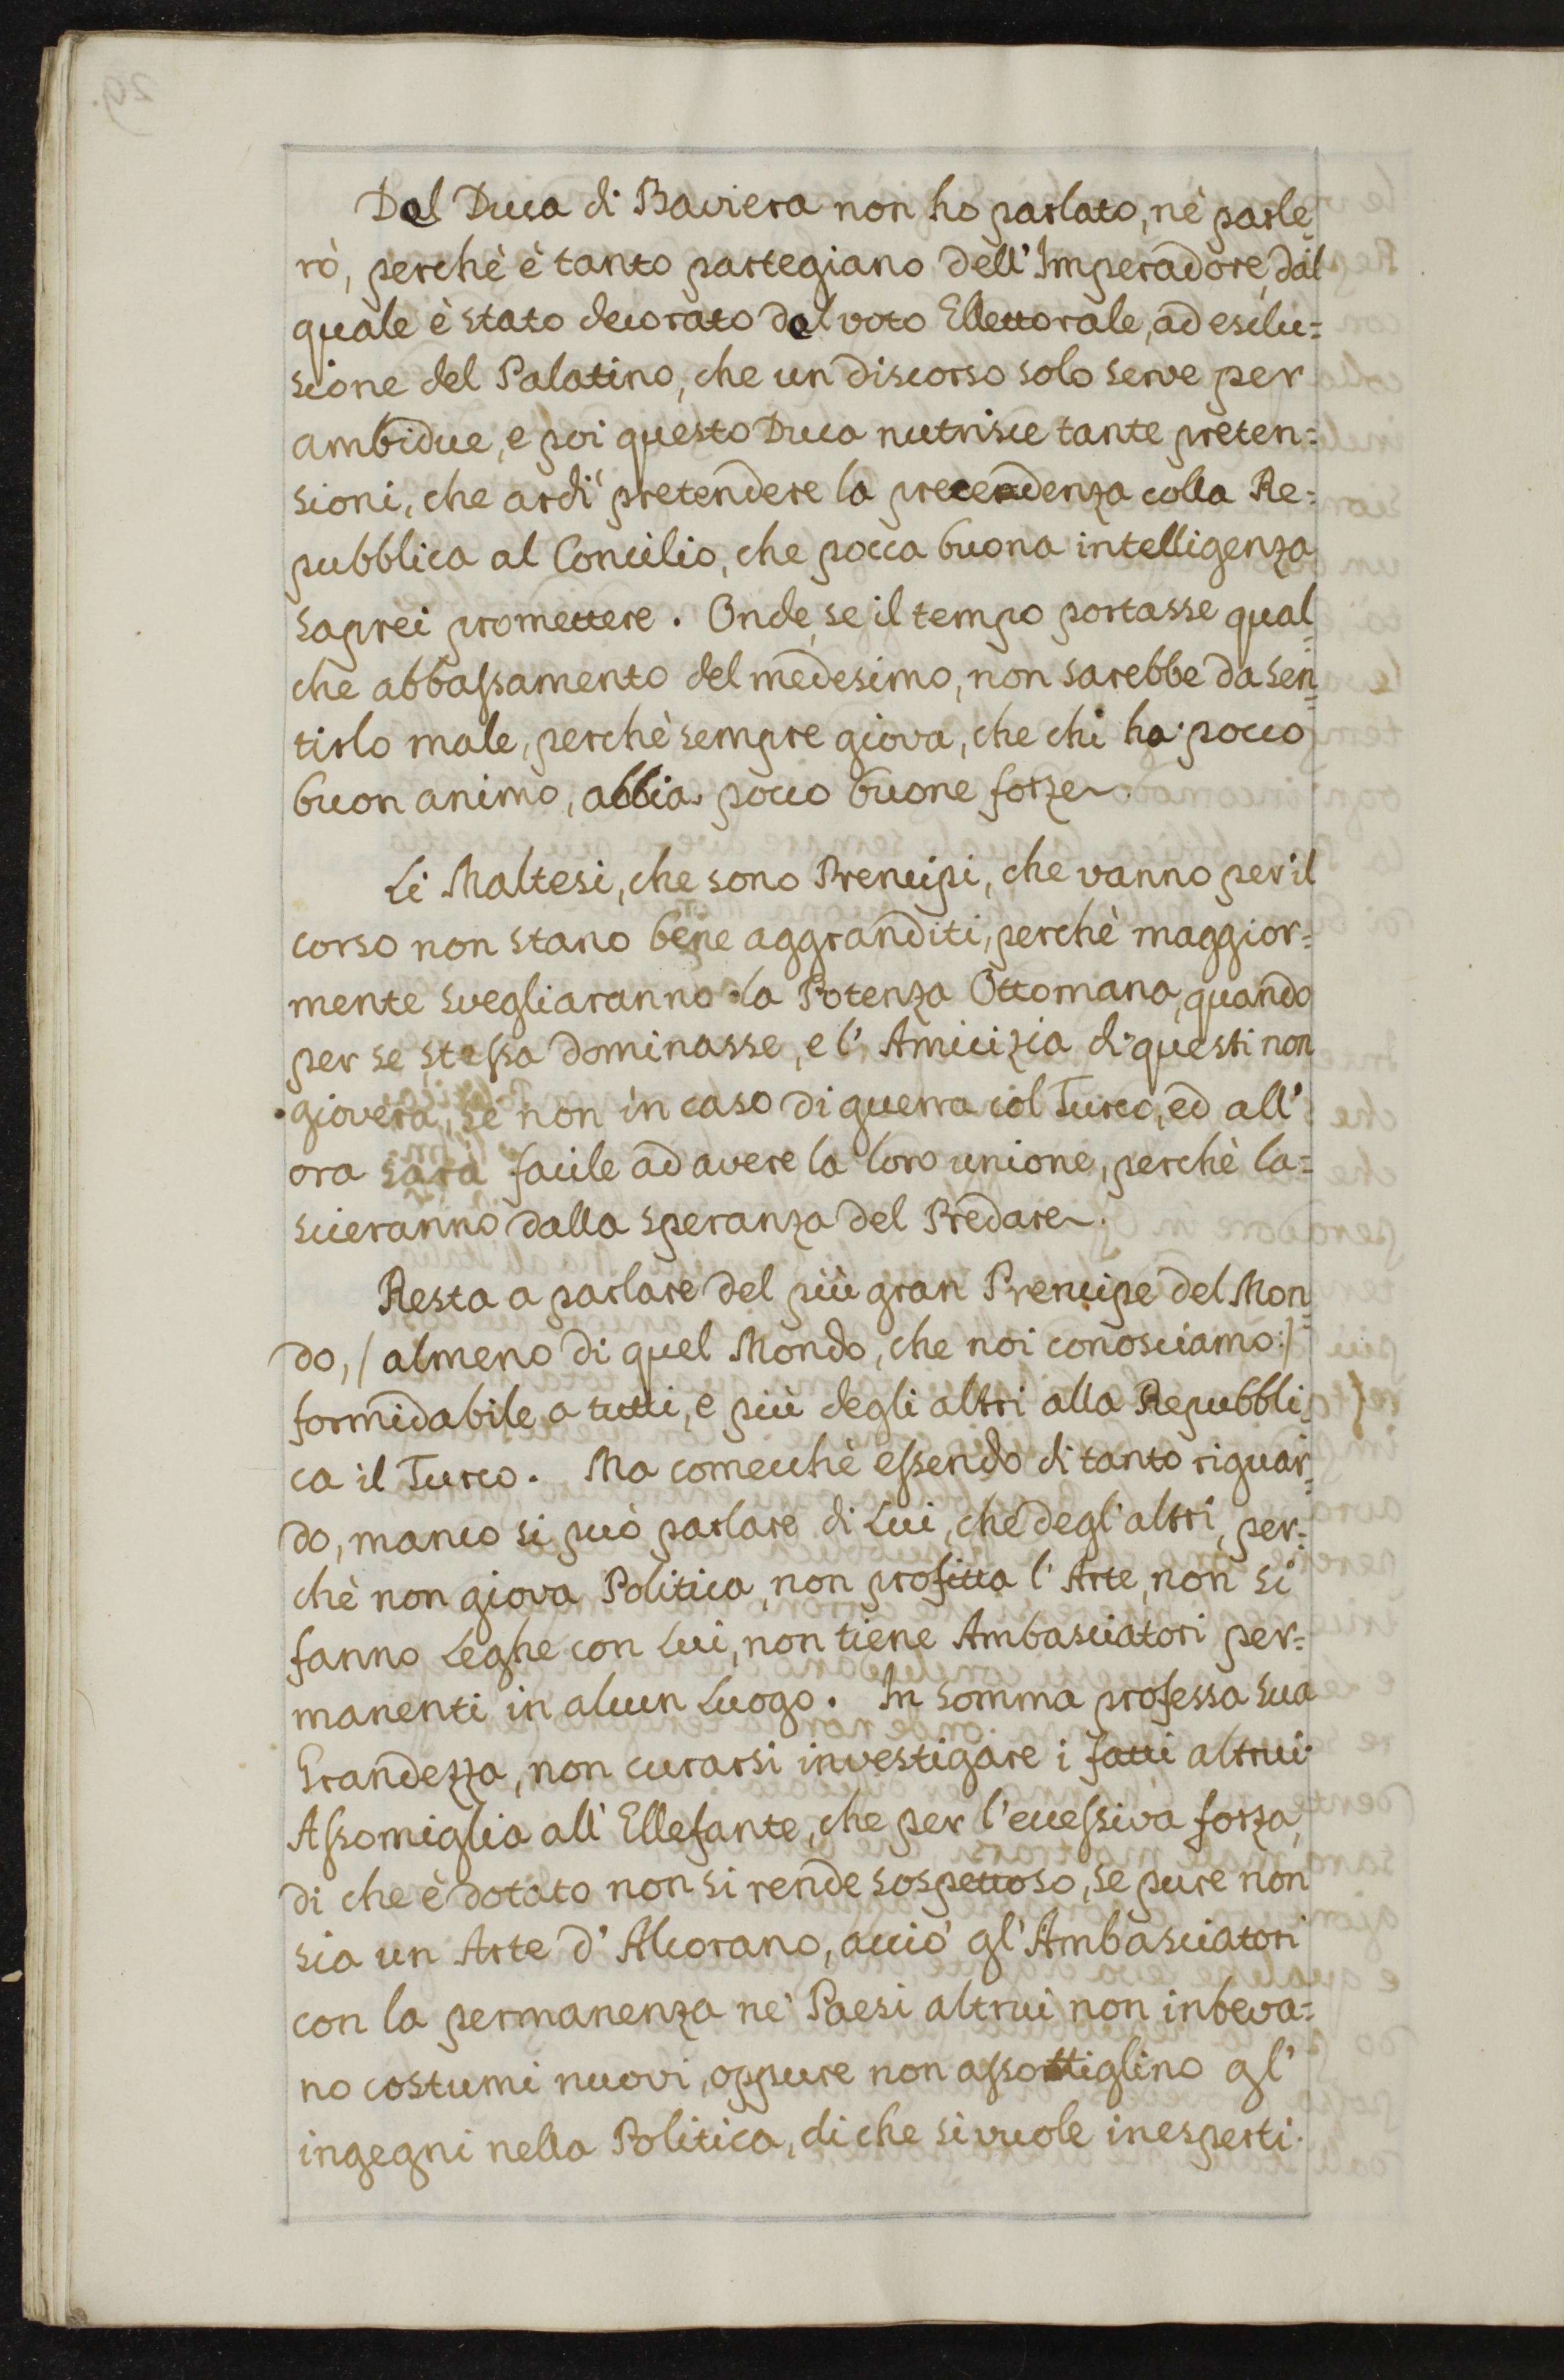 Del Duca di Baviera non ho parlato, nè parle=
rò, perchè è tanto partegiano dell' Imperadore, dal
quale è stato decorato del voto Ellettorale, ad esclu=
sione del Palatino, che un discorso solo serve per
ambidue, e poi questo Duca nutrisce tante preten=
sioni, che ardì pretendere la precendenza colla Re=
pubblica al Concilio, che pocca buona intelligenza
saprei promettere. Onde, se il tempo portasse qual=
che abbassamento del medesimo, non sarebbe da sen=
tirlo male, perchè sempre giova, che chi ha pocco
buon animo, abbia pocco buone forze.
Li Maltesi, che sono Prencipi, che vanno per il
corso non stano bene aggranditi, perchè maggior=
mente svegliaranno la Potenza Ottomana, quando
per se stessa dominasse, e l' Amicizia di questi non
gioverà, se non in caso di guerra col Turco, ed all'
ora sarà facile ad avere la loro unione, perchè la=
scieranno dalla speranza del Predare.
Resta a parlare del più gran Prencipe del Mon=
do, / almeno di quel Mondo, che noi conosciamo:/
formidabile a tutti, e più degli altri alla Repubbli=
ca il Turco. Ma comecchè essendo di tanto riguar=
do, manco si può parlare di Lui, che degl' altri, per=
chè non giova Politica, non profitta l' Arte, non si
fanno Leghe con Lui, non tiene Ambasciatori per=
manenti in alcun Luogo. In somma professa sua
Grandezza, non curarsi investigare i fatti altrui.
Assomiglia all' Ellefante, che per l' eccessiva forza,
di che è dotato non si rende sospettoso, se pure non
sia un Arte d' Alcorano, acciò gl' Ambasciatori
con la permanenza ne' Paesi altrui non inbeva=
no costumi nuovi, oppure non assottiglino gl'
ingegni nella Politica, di che si vuole inesperti.